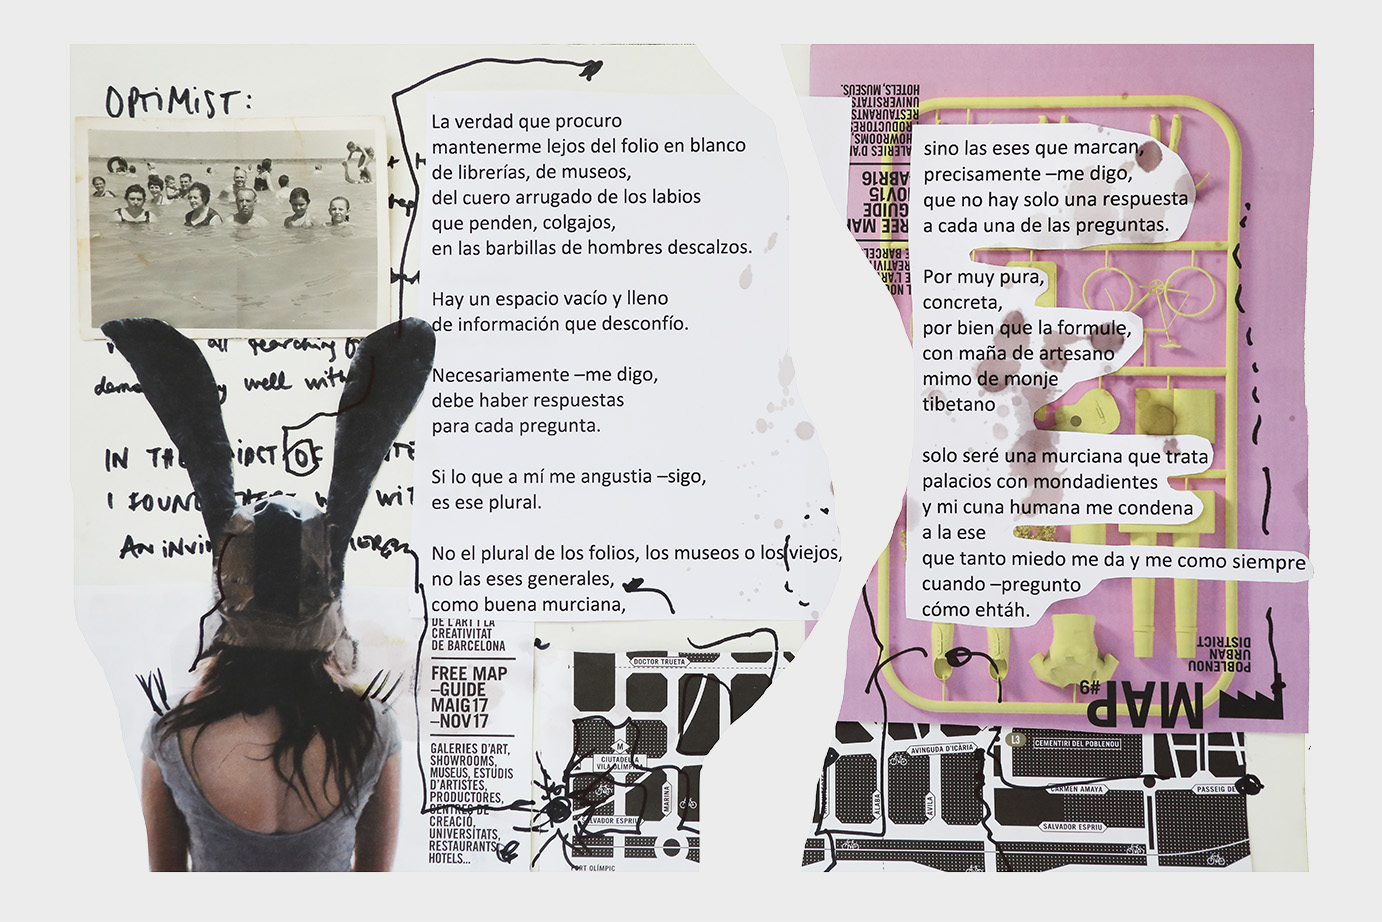 OPTIMIST:
La verdad que procuro
mantenerme lejos del folio en blanco
de librerías, de museos,
del cuero arrugado de los labios
que penden, colgajos,
en las barbillas de hombres descalzos.
Hay un espacio vacío y lleno
de información que desconfío.
Necesariamente –me digo,
debe haber respuestas
para cada pregunta.
Si lo que a mí me angustia –sigo,
es ese plural.
No el plural de los folios, los museos o los viejos,
no las eses generales,
como buena murciana,
sino las eses que marcan,
precisamente –me digo,
que no hay solo una respuesta
a cada una de las preguntas.
Por muy pura,
concreta,
por bien que la formule,
con maña de artesano
mimo de monje
tibetano
solo seré una murciana que trata
palacios con mondadientes
y mi cuna humana me condena
a la ese
que tanto miedo me da y me como siempre
cuando –pregunto
cómo ehtáh.
well with
IN THE
I FOUND
AN INVI
DE L'ART I LA
CREATIVITAT
DE BARCELONA
FREE MAP
–GUIDE
MAIG 17
–NOV 17
GALERIES D'ART,
SHOWROOMS,
MUSEUS, ESTUDIS
D'ARTISTES,
PRODUCTORES,
CENTRES DE
CREACIÓ,
UNIVERSITATS,
RESTAURANTS
HOTELS...
DOCTOR TRUETA
M
CIUTADELLA
VILA OLÍMPICA
MARINA
SALVADOR ESPRIU
PORT OLÍMPIC
HOTELS, MUSEUS.
UNIVERSITATS
RESTAURANTS
PRODUCTORES
SHOWROOMS,
ALERIES D'A
ABR16
NOV15
GUIDE
REE MAP
POBLENOU
URBAN
DISTRICT
MAP #9
AVINGUDA D'ICÀRIA
L3
CEMENTIRI DEL POBLENOU
CARMEN AMAYA
PASSEIG DE
ÀLABA
ÀVILA
SALVADOR ESPRIU